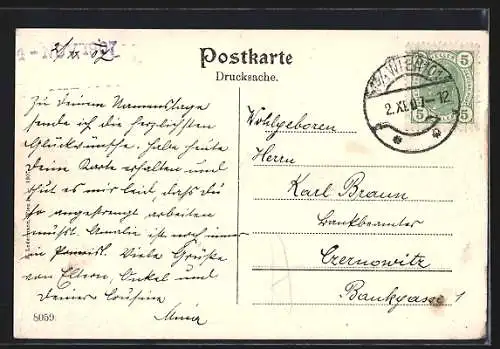 2/XI. 07
Postkarte
Drucksache.
2.XI.07 12
5 5
5 5
Zu Deinem Namenstage
sende ich die herzlichsten
Glückwünsche. Habe heute
Deine Karte erhalten und
thut es mir leid, dass du
so angestrengt arbeiten
musst. Amalie ist noch immer
in Viele Grüße
von Eltern, Onkel und
Deiner Cousine
Wohlgeboren
Herrn
Karl Braun
Bankbeamter
Czernowitz
Bankgasse 1
8059